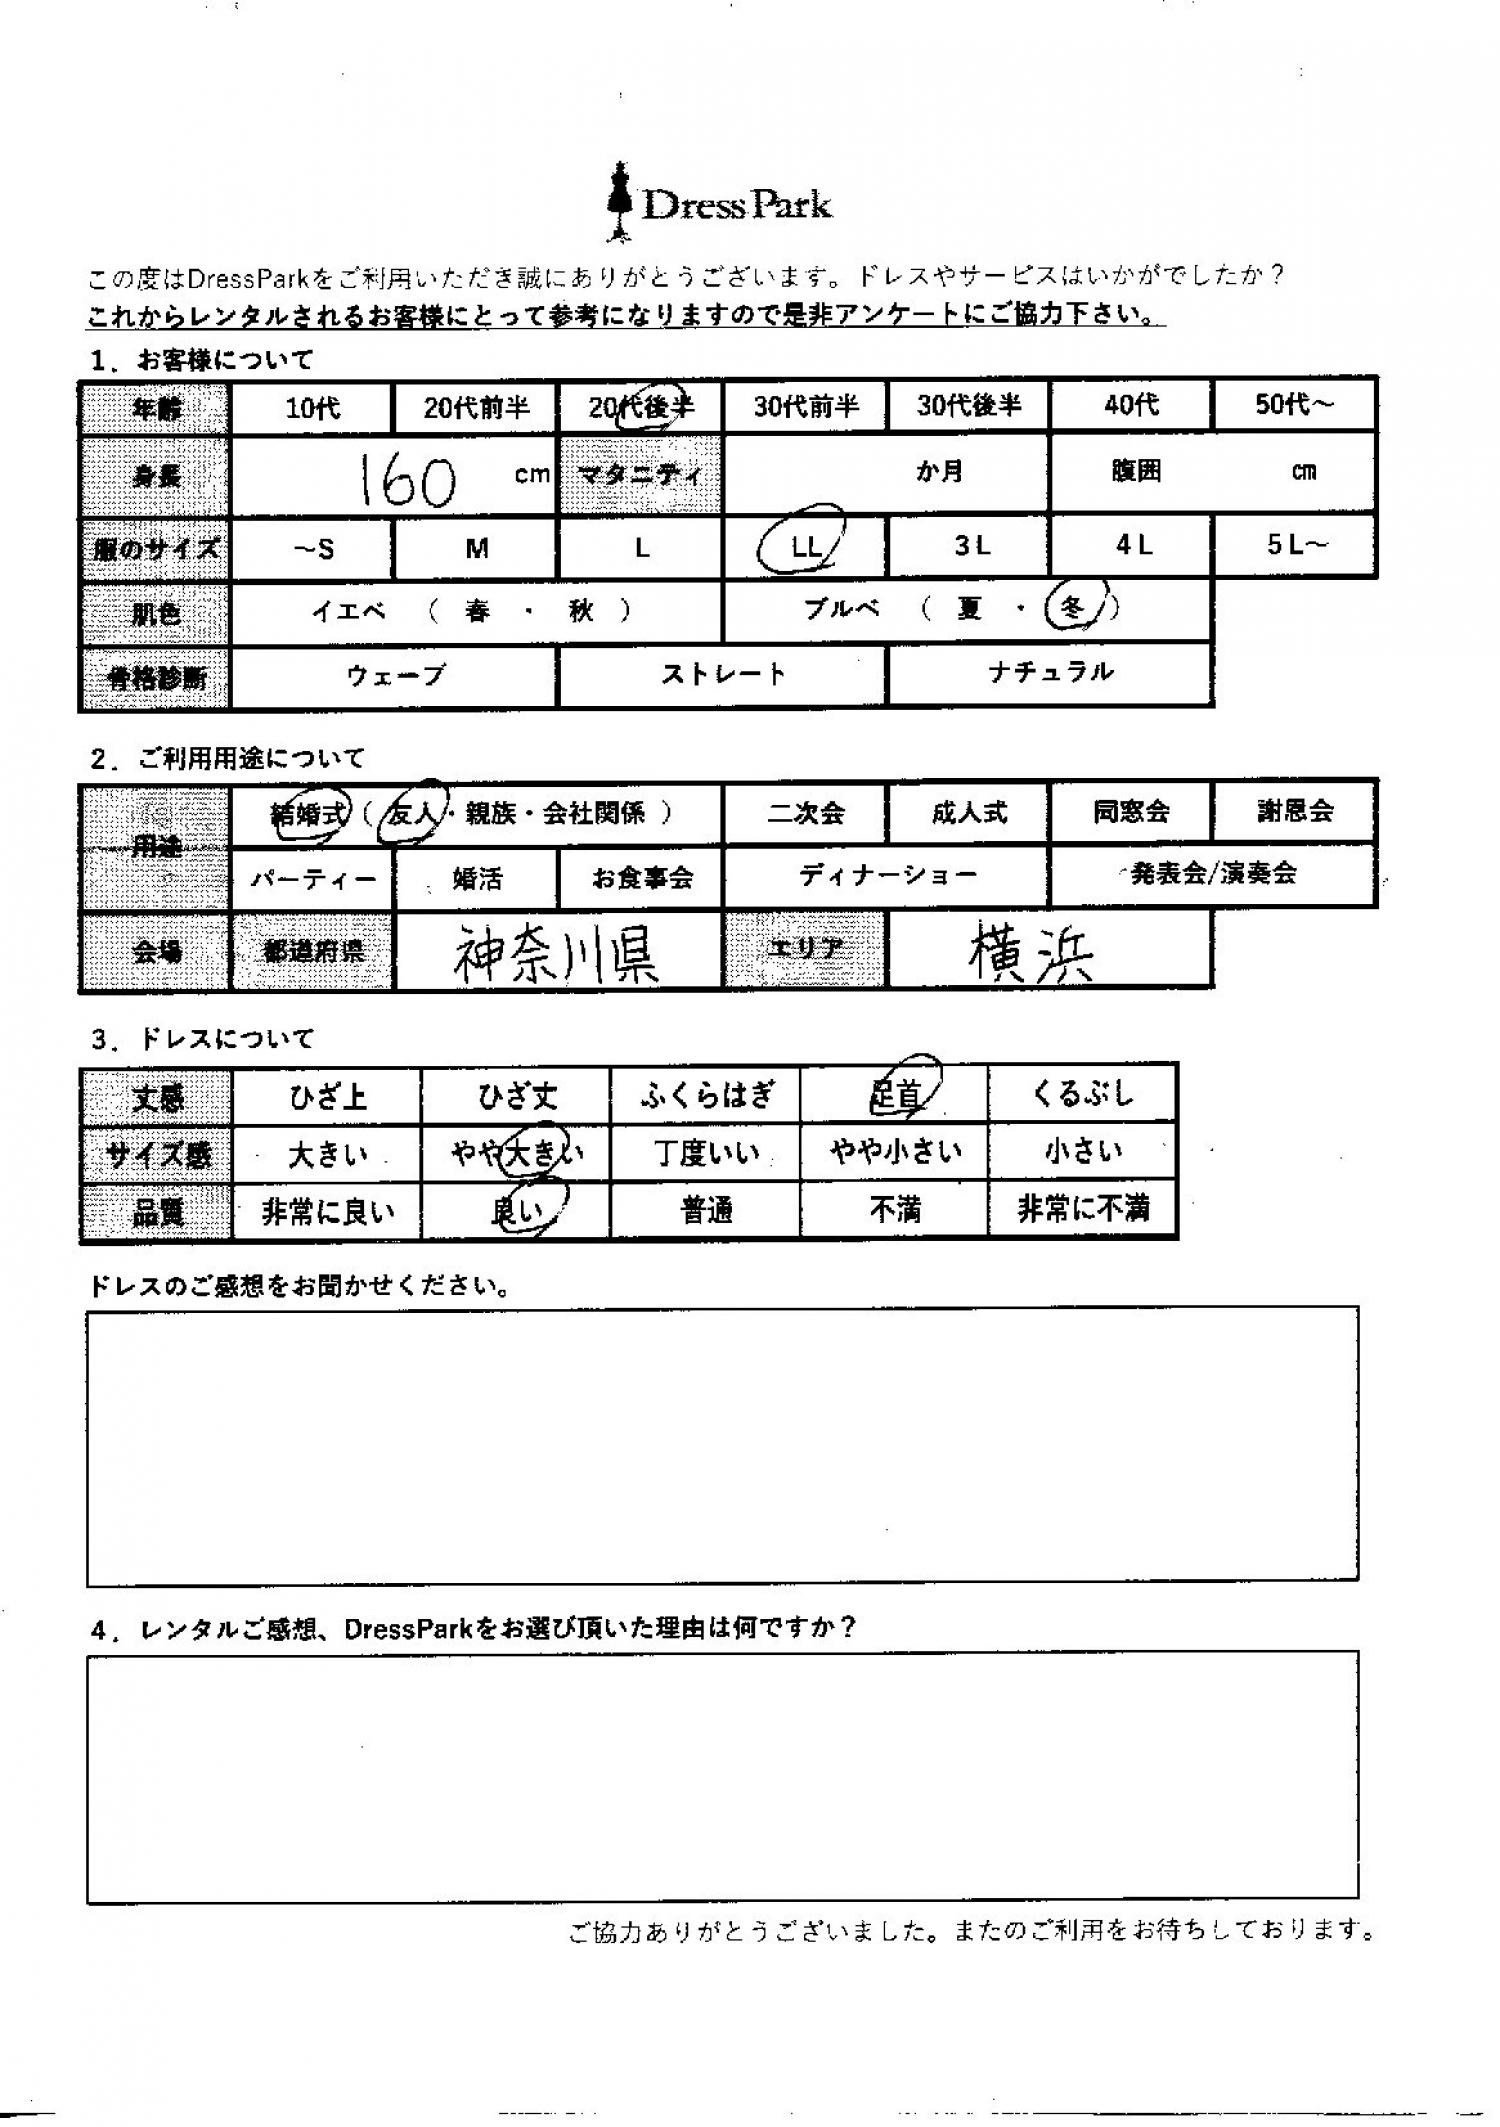 Dress Park
この度はDressParkをご利用いただき誠にありがとうございます。ドレスやサービスはいかがでしたか？
これからレンタルされるお客様にとって参考になりますので是非アンケートにご協力下さい。
1．お客様について
年齢 10代 20代前半 20代後半 30代前半 30代後半 40代 50代～
身長 160 cm マタニティ か月 腹囲 cm
服のサイズ ～S M L LL 3L 4L 5L～
肌色 イエベ （ 春 ・ 秋 ） ブルベ （ 夏 ・ 冬 ）
骨格診断 ウェーブ ストレート ナチュラル
2．ご利用用途について
用途 結婚式（ 友人・親族・会社関係 ） 二次会 成人式 同窓会 謝恩会
パーティー 婚活 お食事会 ディナーショー 発表会/演奏会
会場 都道府県 神奈川県 エリア 横浜
3．ドレスについて
丈感 ひざ上 ひざ丈 ふくらはぎ 足首 くるぶし
サイズ感 大きい やや大きい 丁度いい やや小さい 小さい
品質 非常に良い 良い 普通 不満 非常に不満
ドレスのご感想をお聞かせください。
4．レンタルご感想、DressParkをお選び頂いた理由は何ですか？
ご協力ありがとうございました。またのご利用をお待ちしております。